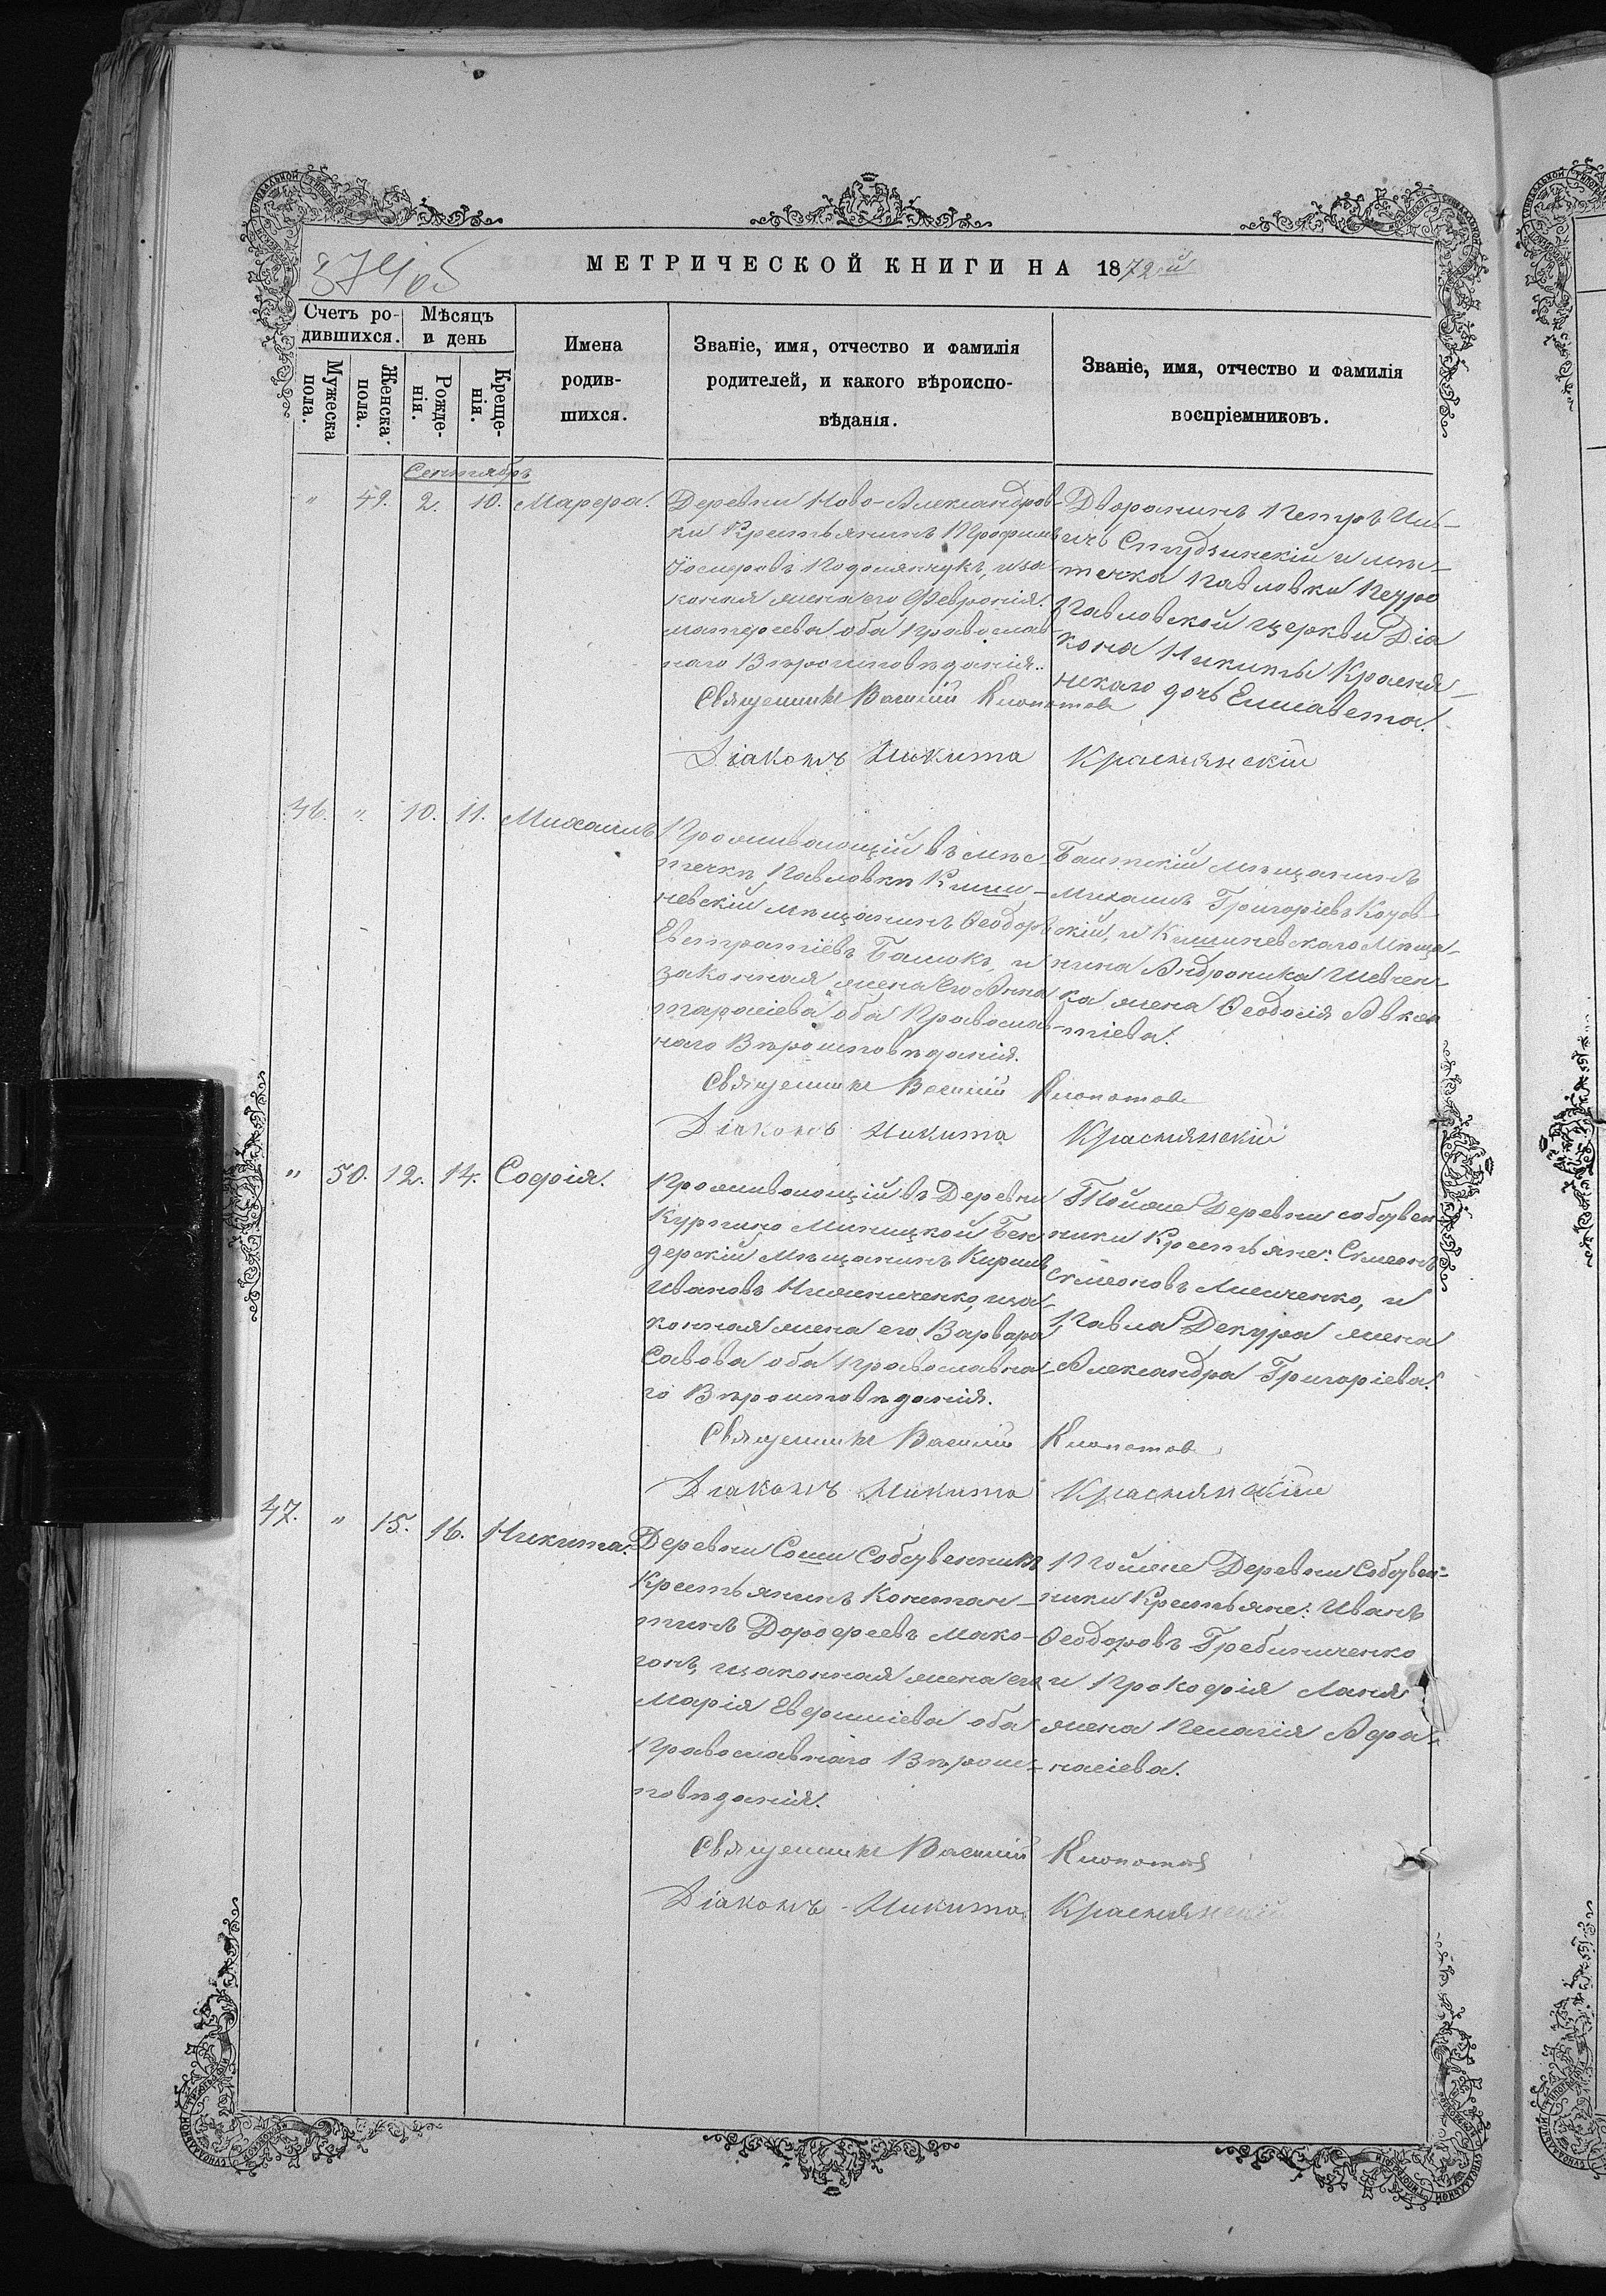 374 об
МЕТРИЧЕСКОЙ КНИГИ НА 1872й
Счетъ ро-
дившихся.
Мужеска пола.
Женска пола.
Мѣсяцъ
и день
Рожде-
нія.
Креще-
нія.
Имена
родив-
шихся.
Званіе, имя, отчество и фамилія
родителей, и какого вѣроиспо-
вѣданія.
Званіе, имя, отчество и фамилія
воспріемниковъ.
Сентябрь
" 49. 2. 10. Марфа.
Деревни Ново-Александров-
ки Крестьянинъ Трофимъ
Іосифовъ Подолянчукъ, и за-
конная жена его Феврронія
Матфеева оба православ-
наго Вѣроисповѣданія.
Дворянинъ Петръ
Студзинскій и мѣс-
течка Павловки Петро
Павловской церкви Діа
кона Никиты Красня-
нскаго дочь Елисавета.
Священникъ Василій Клопотовъ
Діаконъ Никита Краснянскій
46. " 10. 11. Михаилъ
Проживающій въ мѣс-
течкѣ Павловкѣ Киши-
невскій мѣщанинъ Ѳеодоръ
Евстратіевъ Башокъ, и
законная жена его Анна
Тарасіева оба Православ-
наго Вѣроисповѣданія.
Балтскій мѣщанинъ
Михаилъ Григоріевъ Козов-
скій, и Кишиневскаго Мѣща-
нина Андроника Шевчен
ка жена Ѳеодосія Авксен
тіева.
Священникъ Василій Клопотовъ
Діаконъ Никита Краснянскій
" 50. 12. 14. Софія.
Проживающій въ Деревни
Мицкой Бен
дерскій Мѣщанинъ Кирилъ
Ивановъ и за-
конная жена его Варвара
Савова оба православна-
го Вѣроисповѣданія.
Тойже Деревни собствен
ники Крестьяне: Симеонъ
Симеоновъ и
Павла Декура жена
Александра Григоріева.
Священникъ Василій Клопотовъ
Діаконъ Никита Краснянскій
47. " 15. 16. Никита.
Деревни Соши Собственникъ
Крестьянинъ Констан-
тинъ Дорофеевъ Мако-
гонъ, и законная жена его
Марія Евфиміева оба
Православнаго Вѣроис-
повѣданія.
Тойже Деревни Собствен-
ники Крестьяне: Иванъ
Ѳеодоровъ Гребиниченко
и Прокофія
жена Пелагія Афа-
насіева.
Священникъ Василій Клопотовъ
Діаконъ Никита Краснянскій